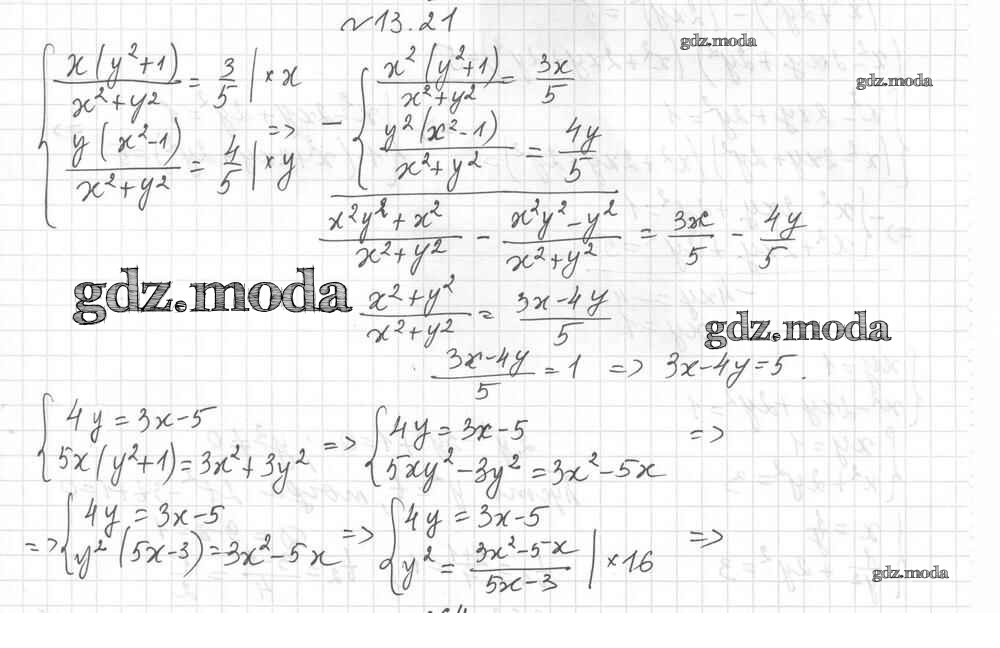 №13.21
gdz.moda
gdz.moda
{ x(y²+1)/(x²+y²) = 3/5 | × x => − { x²(y²+1)/(x²+y²) = 3x/5
{ y(x²-1)/(x²+y²) = 4/5 | × y { y²(x²-1)/(x²+y²) = 4y/5
(x²y²+x²)/(x²+y²) - (x²y²-y²)/(x²+y²) = 3x/5 - 4y/5
gdz.moda
(x²+y²)/(x²+y²) = (3x-4y)/5
gdz.moda
(3x-4y)/5 = 1 => 3x-4y=5.
{ 4y = 3x-5 => { 4y = 3x-5 =>
{ 5x(y²+1)=3x²+3y² { 5xy²-3y²=3x²-5x
=> { 4y = 3x-5 => { 4y = 3x-5 =>
{ y²(5x-3)=3x²-5x { y² = (3x²-5x)/(5x-3) | × 16
gdz.moda